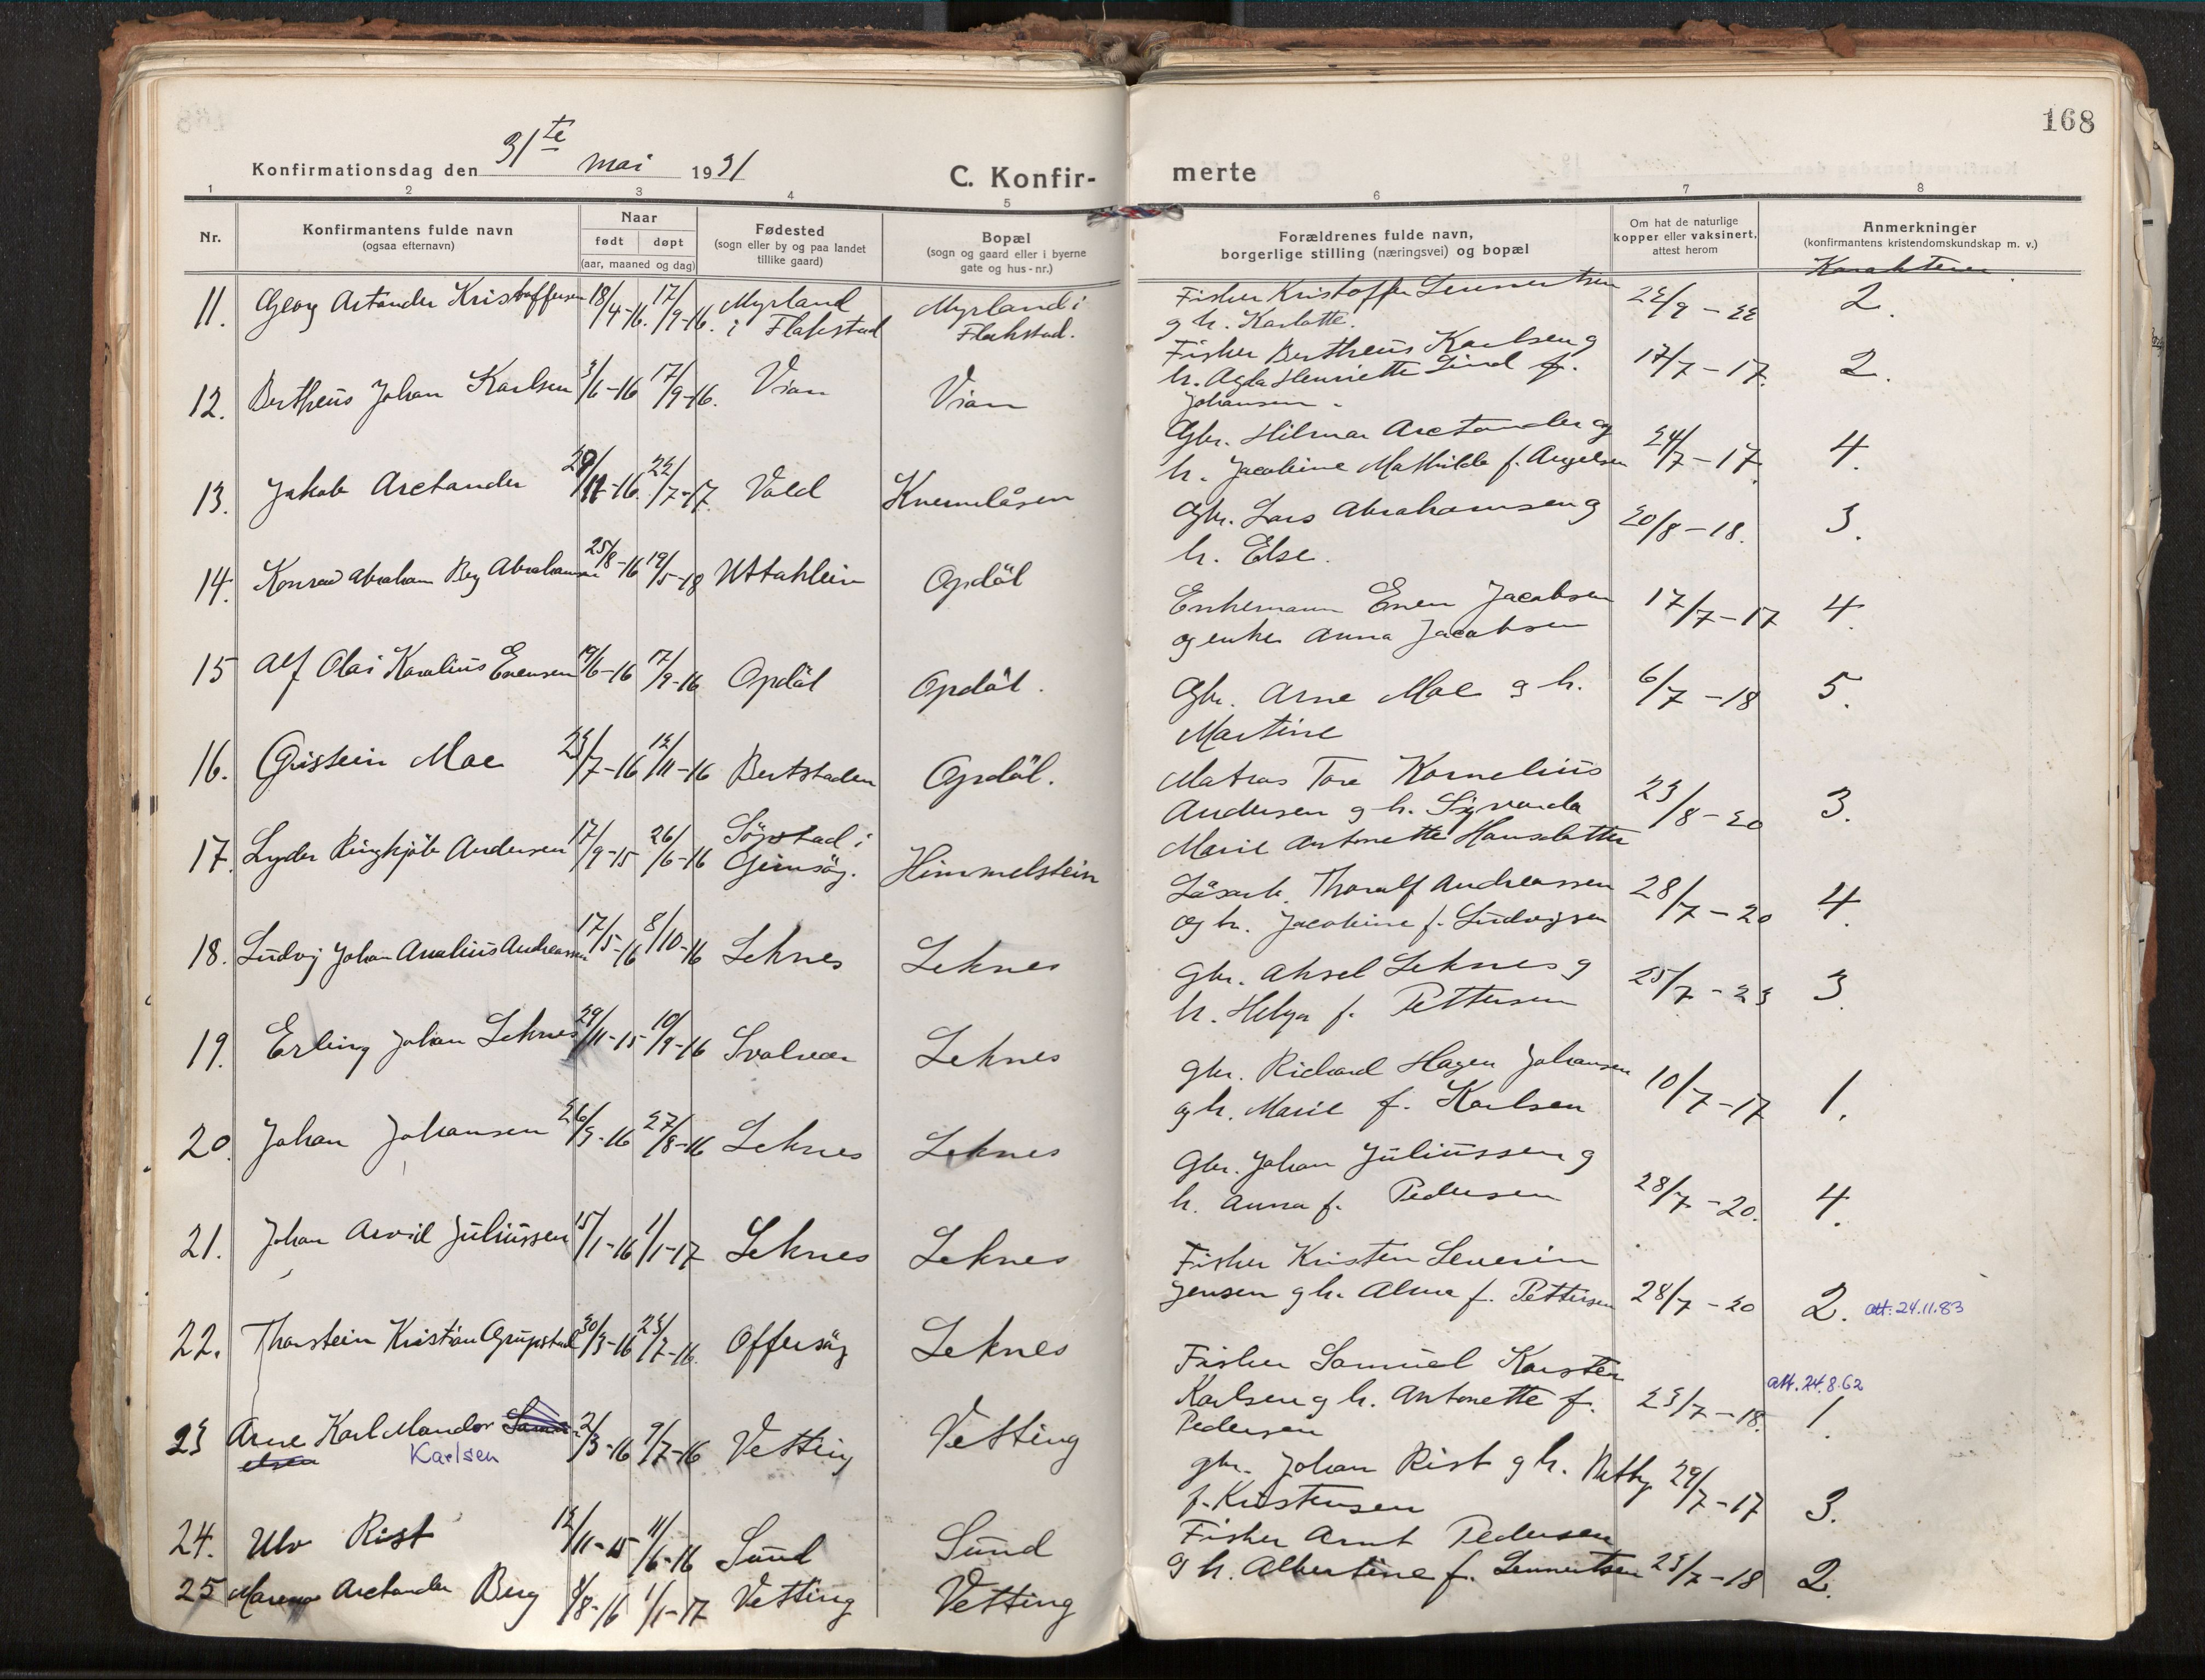 168
Konfirmationsdag den 31te mai 1931
C. Konfir-
merte
1 2 3 4 5 6 7 8
Nr.
Konfirmantens fulde navn
(ogsaa efternavn)
Naar
født døpt
(aar, maaned og dag)
Fødested
(sogn eller by og paa landet
tillike gaard)
Bopæl
(sogn og gaard eller i byerne
gate og hus-nr.)
Forældrenes fulde navn,
borgerlige stilling (næringsvei) og bopæl
Om hat de naturlige
kopper eller vaksinert,
attest herom
Anmerkninger
(konfirmantens kristendomskundskap m. v.)
Karakterer
11. Georg Astander Kristoffersen 18/4-16. 17/9-16. Myrland
i Flakstad
Myrland i
Flakstad.
Fisker Kristoffer Lennertsen
g h. Karlotte.
22/9 - 22 2.
12. Bertheus Johan Karlsen 3/6-16 17/9-16. Vian Vian
Fisker Bertheus Karlsen g
h. Agda Henriette Lind f.
Johansen
17/7 - 17. 2.
13. Jakob Arctander 29/11-16. 22/7-17. Vold
Gbr. Hilmar Arctander og
h. Jacobine Mathilde f. Angelsen
24/7 - 17. 4.
14. Konrad Abraham Berg Abrahamsen 25/8-16 19/5-18 Uttakleiv Opdöl
Gbr. Lars Abrahamsen g
h. Else.
20/8 - 18. 3.
15 Alf Olai Karolius Evensen 19/6-16 17/9-16 Opdöl Opdöl.
Enkemann Even Jacobsen
og enke Anna Jacobsen
17/7 - 17 4.
16. Gristein Moe 23/7-16 12/11-16 Bertstaden Opdöl.
Gbr. Arne Moe g h.
Martine
6/7 - 18 5.
17. Lyder Ringkjöb Andersen 17/9-15 26/6-16
Gimsöy.
Himmelstein
Matros Tore Kornelius
Andersen g h. Sigvarda
Marie Antonette Hansdatter
23/8 - 20 3.
18. Ludvig Johan Analius Andreassen 17/5-16 8/10-16 Leknes Leknes
Thoralf Andreassen
og h. Jacobine f. Ludvigsen
28/7 - 20 4.
19. Erling Johan Leknes 29/11-15 10/9-16 Svolvær Leknes
Gbr. Aksel Leknes g
h. Helga f. Pettersen
25/7 - 23 3.
20. Johan Johansen 26/3-16 27/8-16 Leknes Leknes
Gbr. Richard Hagen Johansen
g h. Marie f. Karlsen
10/7 - 17 1.
21. Johan Arvid Juliussen 15/1-16 1/1-17 Leknes Leknes
Gbr. Johan Juliussen g
h. Anna f. Pedersen
28/7 - 20. 4.
22. Thorstein Kristian 30/3-16 23/7-16. Offersöy Leknes
Fisker Kristen Severin
Jensen g h. Alma f. Pettersen
28/7 - 20 2. att: 24.11.83
23 Arne Karl Mandor Samu-
elsen Karlsen
2/3-16 9/7-16 Vetting Vetting
Fisker Samuel Karsten
Karlsen g h. Antonette f.
Pedersen
23/7 - 18. att. 24.8.62
1.
24. Ulv Rist 12/11-15 11/6-16 Sund Sund
gbr. Johan Rist g h. Netty
f. Kristensen
29/7 - 17 3.
25 Arctander Berg 8/8-16 1/1-17 Vetting Vetting
Fisker Arnt Pedersen
g h. Albertine f. Lennertsen
23/7 - 18 2.